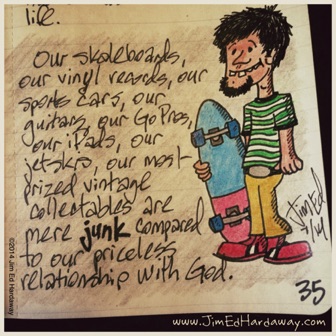 life.
Our skateboards,
our vinyl records, our
sports cars, our
guitars, our GoPros,
our iPads, our
jetskis, our most
prized vintage
collectables are
mere junk compared
to our priceless
relationship with God.
Jim Ed
35
©2014 Jim Ed Hardaway
www.JimEdHardaway.com